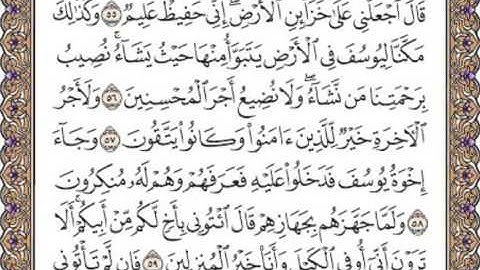 قَالَ ٱجْعَلْنِي عَلَىٰ خَزَآئِنِ ٱلْأَرْضِۖ إِنِّي حَفِيظٌ عَلِيمٌ ٥٥ وَكَذَٰلِكَ
مَكَّنَّا لِيُوسُفَ فِي ٱلْأَرْضِ يَتَبَوَّأُ مِنْهَا حَيْثُ يَشَآءُۚ نُصِيبُ
بِرَحْمَتِنَا مَن نَّشَآءُۖ وَلَا نُضِيعُ أَجْرَ ٱلْمُحْسِنِينَ ٥٦ وَلَأَجْرُ
ٱلْأٓخِرَةِ خَيْرٌ لِّلَّذِينَ ءَامَنُوا۟ وَكَانُوا۟ يَتَّقُونَ ٥٧ وَجَآءَ
إِخْوَةُ يُوسُفَ فَدَخَلُوا۟ عَلَيْهِ فَعَرَفَهُمْ وَهُمْ لَهُۥ مُنكِرُونَ
٥٨ وَلَمَّا جَهَّزَهُم بِجَهَازِهِمْ قَالَ ٱئْتُونِي بِأَخٍ لَّكُم مِّنْ أَبِيكُمْۚ أَلَا
تَرَوْنَ أَنِّيٓ أُوفِي ٱلْكَيْلَ وَأَنَا۠ خَيْرُ ٱلْمُنزِلِينَ ٥٩ فَإِن لَّمْ تَأْتُونِي